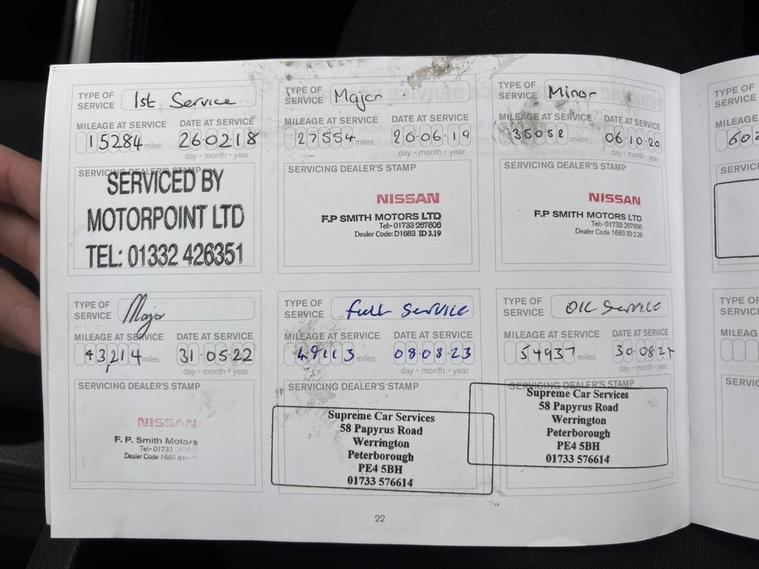 TYPE OF SERVICE 1st Service
MILEAGE AT SERVICE DATE AT SERVICE
15284 miles 26 02 18
day - month - year
SERVICING DEALER'S STAMP
SERVICED BY
MOTORPOINT LTD
TEL: 01332 426351
TYPE OF SERVICE Major
MILEAGE AT SERVICE DATE AT SERVICE
27554 miles 20-06-19
day - month - year
SERVICING DEALER'S STAMP
NISSAN
F.P SMITH MOTORS LTD
Tel:- 01733 267606
Dealer Code: D1683 ID 3.19
TYPE OF SERVICE Minor
MILEAGE AT SERVICE DATE AT SERVICE
35058 miles 06-10-20
day - month - year
SERVICING DEALER'S STAMP
NISSAN
F.P SMITH MOTORS LTD
Tel:- 01733 267606
Dealer Code 1683 ID 2.20
TYPE OF SERVICE Major
MILEAGE AT SERVICE DATE AT SERVICE
43,214 miles 31-05-22
day - month - year
SERVICING DEALER'S STAMP
NISSAN
F. P. Smith Motors
Tel:- 01733
Dealer Code 1683
TYPE OF SERVICE full Service
MILEAGE AT SERVICE DATE AT SERVICE
49113 miles 08-08-23
day - month - year
SERVICING DEALER'S STAMP
Supreme Car Services
58 Papyrus Road
Werrington
Peterborough
PE4 5BH
01733 576614
TYPE OF SERVICE OIL Service
MILEAGE AT SERVICE DATE AT SERVICE
54937 miles 30-08-24
day - month - year
SERVICING DEALER'S STAMP
Supreme Car Services
58 Papyrus Road
Werrington
Peterborough
PE4 5BH
01733 576614
22
TYPE OF SERVICE
TYPE OF SERVICE